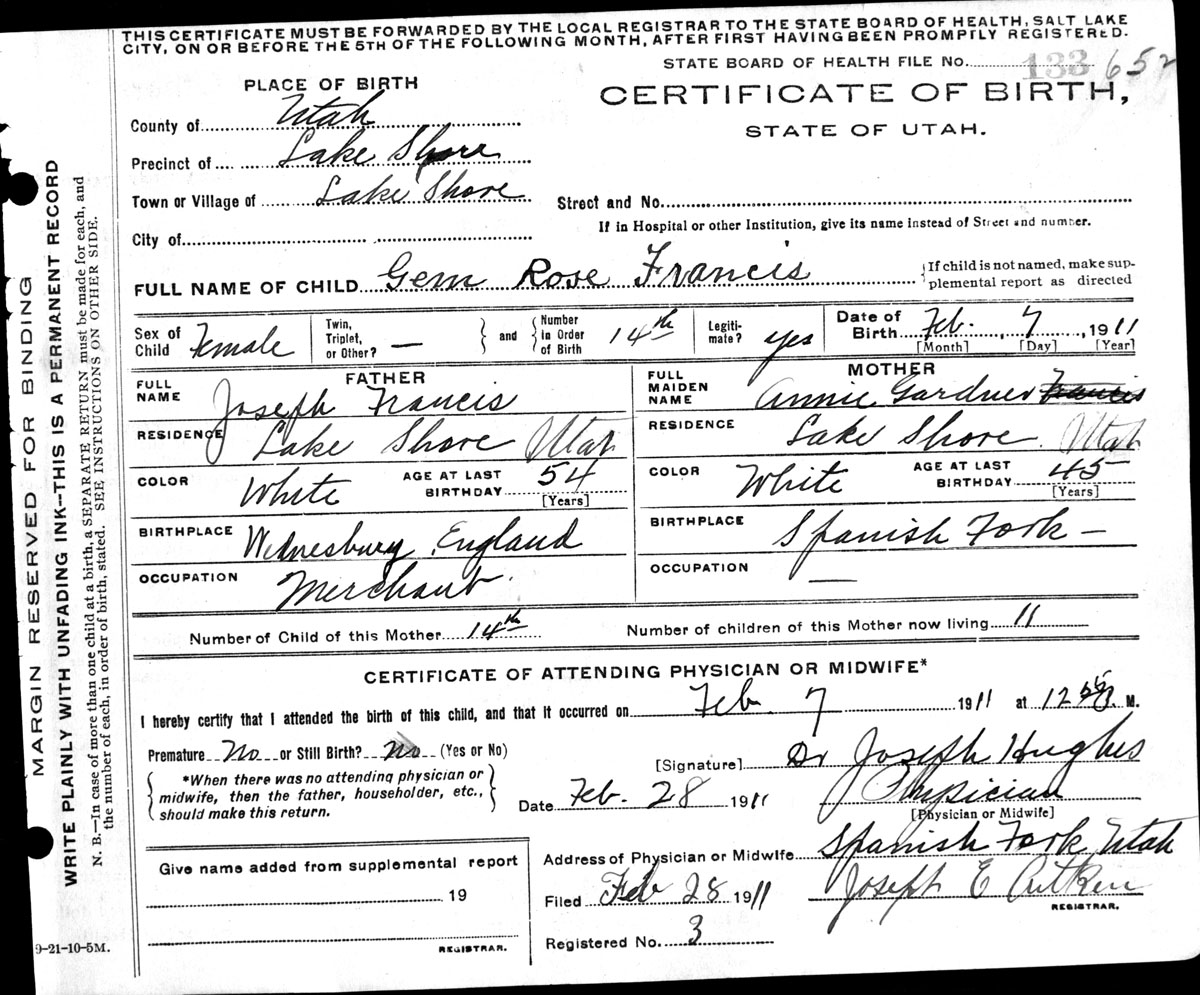 THIS CERTIFICATE MUST BE FORWARDED BY THE LOCAL REGISTRAR TO THE STATE BOARD OF HEALTH, SALT LAKE
CITY, ON OR BEFORE THE 5TH OF THE FOLLOWING MONTH, AFTER FIRST HAVING BEEN PROMPTLY REGISTERED.
STATE BOARD OF HEALTH FILE No. 133 652
PLACE OF BIRTH
CERTIFICATE OF BIRTH,
STATE OF UTAH.
County of Utah
Precinct of Lake Shore
Town or Village of Lake Shore
Street and No.
If in Hospital or other Institution, give its name instead of Street and number.
City of
FULL NAME OF CHILD Gem Rose Francis
If child is not named, make sup-
plemental report as directed
Sex of Child Female
Twin, Triplet, or Other? —
and
Number in Order of Birth 14th
Legiti-mate? yes
Date of Birth Feb. 7, 1911
[Month] [Day] [Year]
FATHER
FULL NAME Joseph Francis
RESIDENCE Lake Shore Utah
COLOR White
AGE AT LAST BIRTHDAY 54
[Years]
BIRTHPLACE Wednesbury, England
OCCUPATION Merchant
MOTHER
FULL MAIDEN NAME Annie Gardner Francis
RESIDENCE Lake Shore. Utah
COLOR White
AGE AT LAST BIRTHDAY 45
[Years]
BIRTHPLACE Spanish Fork —
OCCUPATION —
Number of Child of this Mother 14th
Number of children of this Mother now living 11
CERTIFICATE OF ATTENDING PHYSICIAN OR MIDWIFE*
I hereby certify that I attended the birth of this child, and that it occurred on Feb. 7 1911 at 12 M.
Premature No or Still Birth? No (Yes or No)
*When there was no attending physician or
midwife, then the father, householder, etc.,
should make this return.
[Signature] Dr Joseph Hughes
Date Feb. 28 1911
Physician
[Physician or Midwife]
Address of Physician or Midwife Spanish Fork Utah
Give name added from supplemental report
19
REGISTRAR.
Filed Feb 28 1911
Joseph E
REGISTRAR.
Registered No. 3
MARGIN RESERVED FOR BINDING
WRITE PLAINLY WITH UNFADING INK—THIS IS A PERMANENT RECORD
N. B.—In case of more than one child at a birth, a SEPARATE RETURN must be made for each, and
the number of each, in order of birth, stated. SEE INSTRUCTIONS ON OTHER SIDE.
9-21-10-5M.